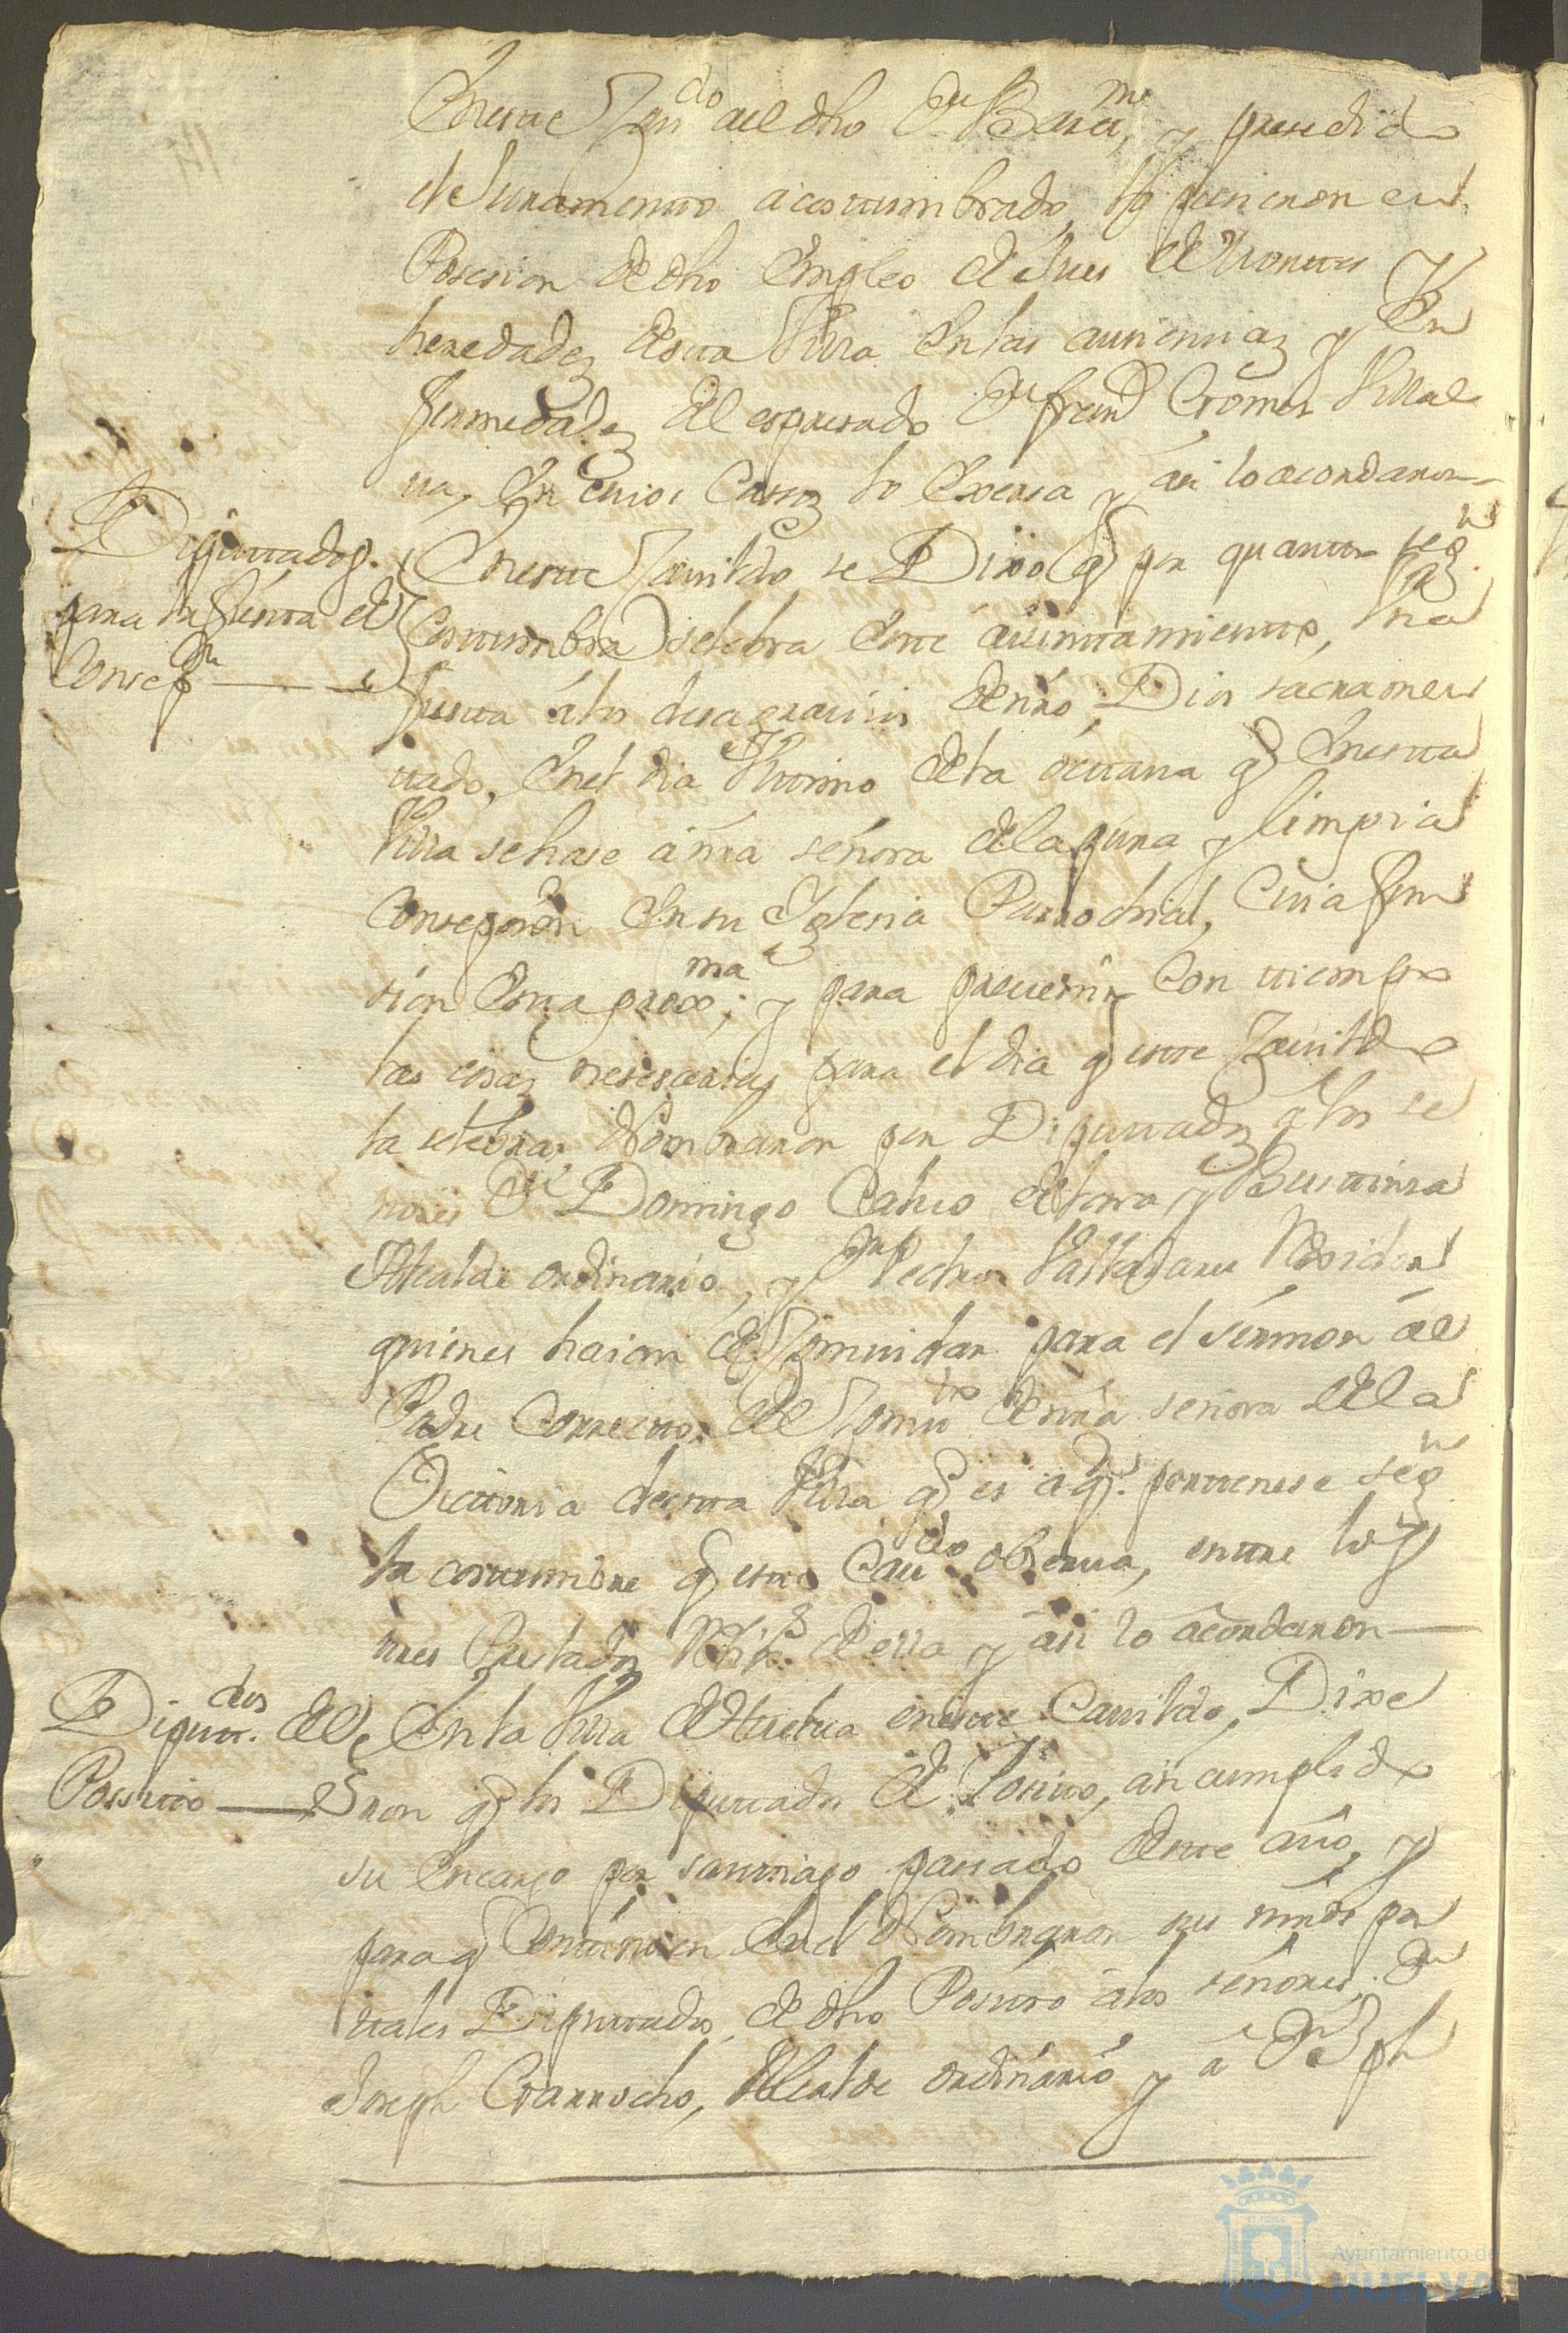 En este Cav.do al dho Dn Barme, y presedido
el Juramento acostumbrado, lo pusieron en
Posesion de dho Empleo de Jues de Montes y
heredades desta Villa En las ausencias y En
fermedades del espresado Dn Fran.co Gomes Villal
va, En cuios Casos lo Exersa y asi lo acordaron
Diputados
para la fiesta de
Consepn
En este Cavildo se Dixo q por quanto seg.n
Costumbre selebra este aiuntamiento, Una
fiesta á los desagravios de nro Dios sacramen
tado, En el dia Ultimo de la octava q En esta
Villa se hase á nra señora de la pura y limpia
Consepcion En su Yglesia Parrochial, Cuia fun
sion Esta proxma; y para prevenir Con tiempo
las cosas nesesarias para el dia q este Cavildo
la selebra, Nombraron por Diputados a los se
ñores Dn Domingo Calvo de Lara y Bustinsa
Alcalde ordinario, y Dn Pedro Valladares Rexidor
quienes haian de Comvidar para el sermon al
Padre Corrector del Comv.to de nra señora de la
Victoria de esta Villa q es a qn pertenese seg.n
la costumbre q este Cav.do observa, entre los
tres Prelados de ella y asi lo acordaron
Diput.dos del
Possito
En la Villa de Huelva en este Cavildo, Dixe
ron q los Diputados del Posito, an cumplido
su Encargo por santiago pasado deste año, y
para q Continuen En el Nombraron sus mrds por
tales Diputados de dho Posito a los señores Dn
Joseph Garrocho, Alcalde ordinario y a Dn Jph
Ayuntamiento de
HUELVA